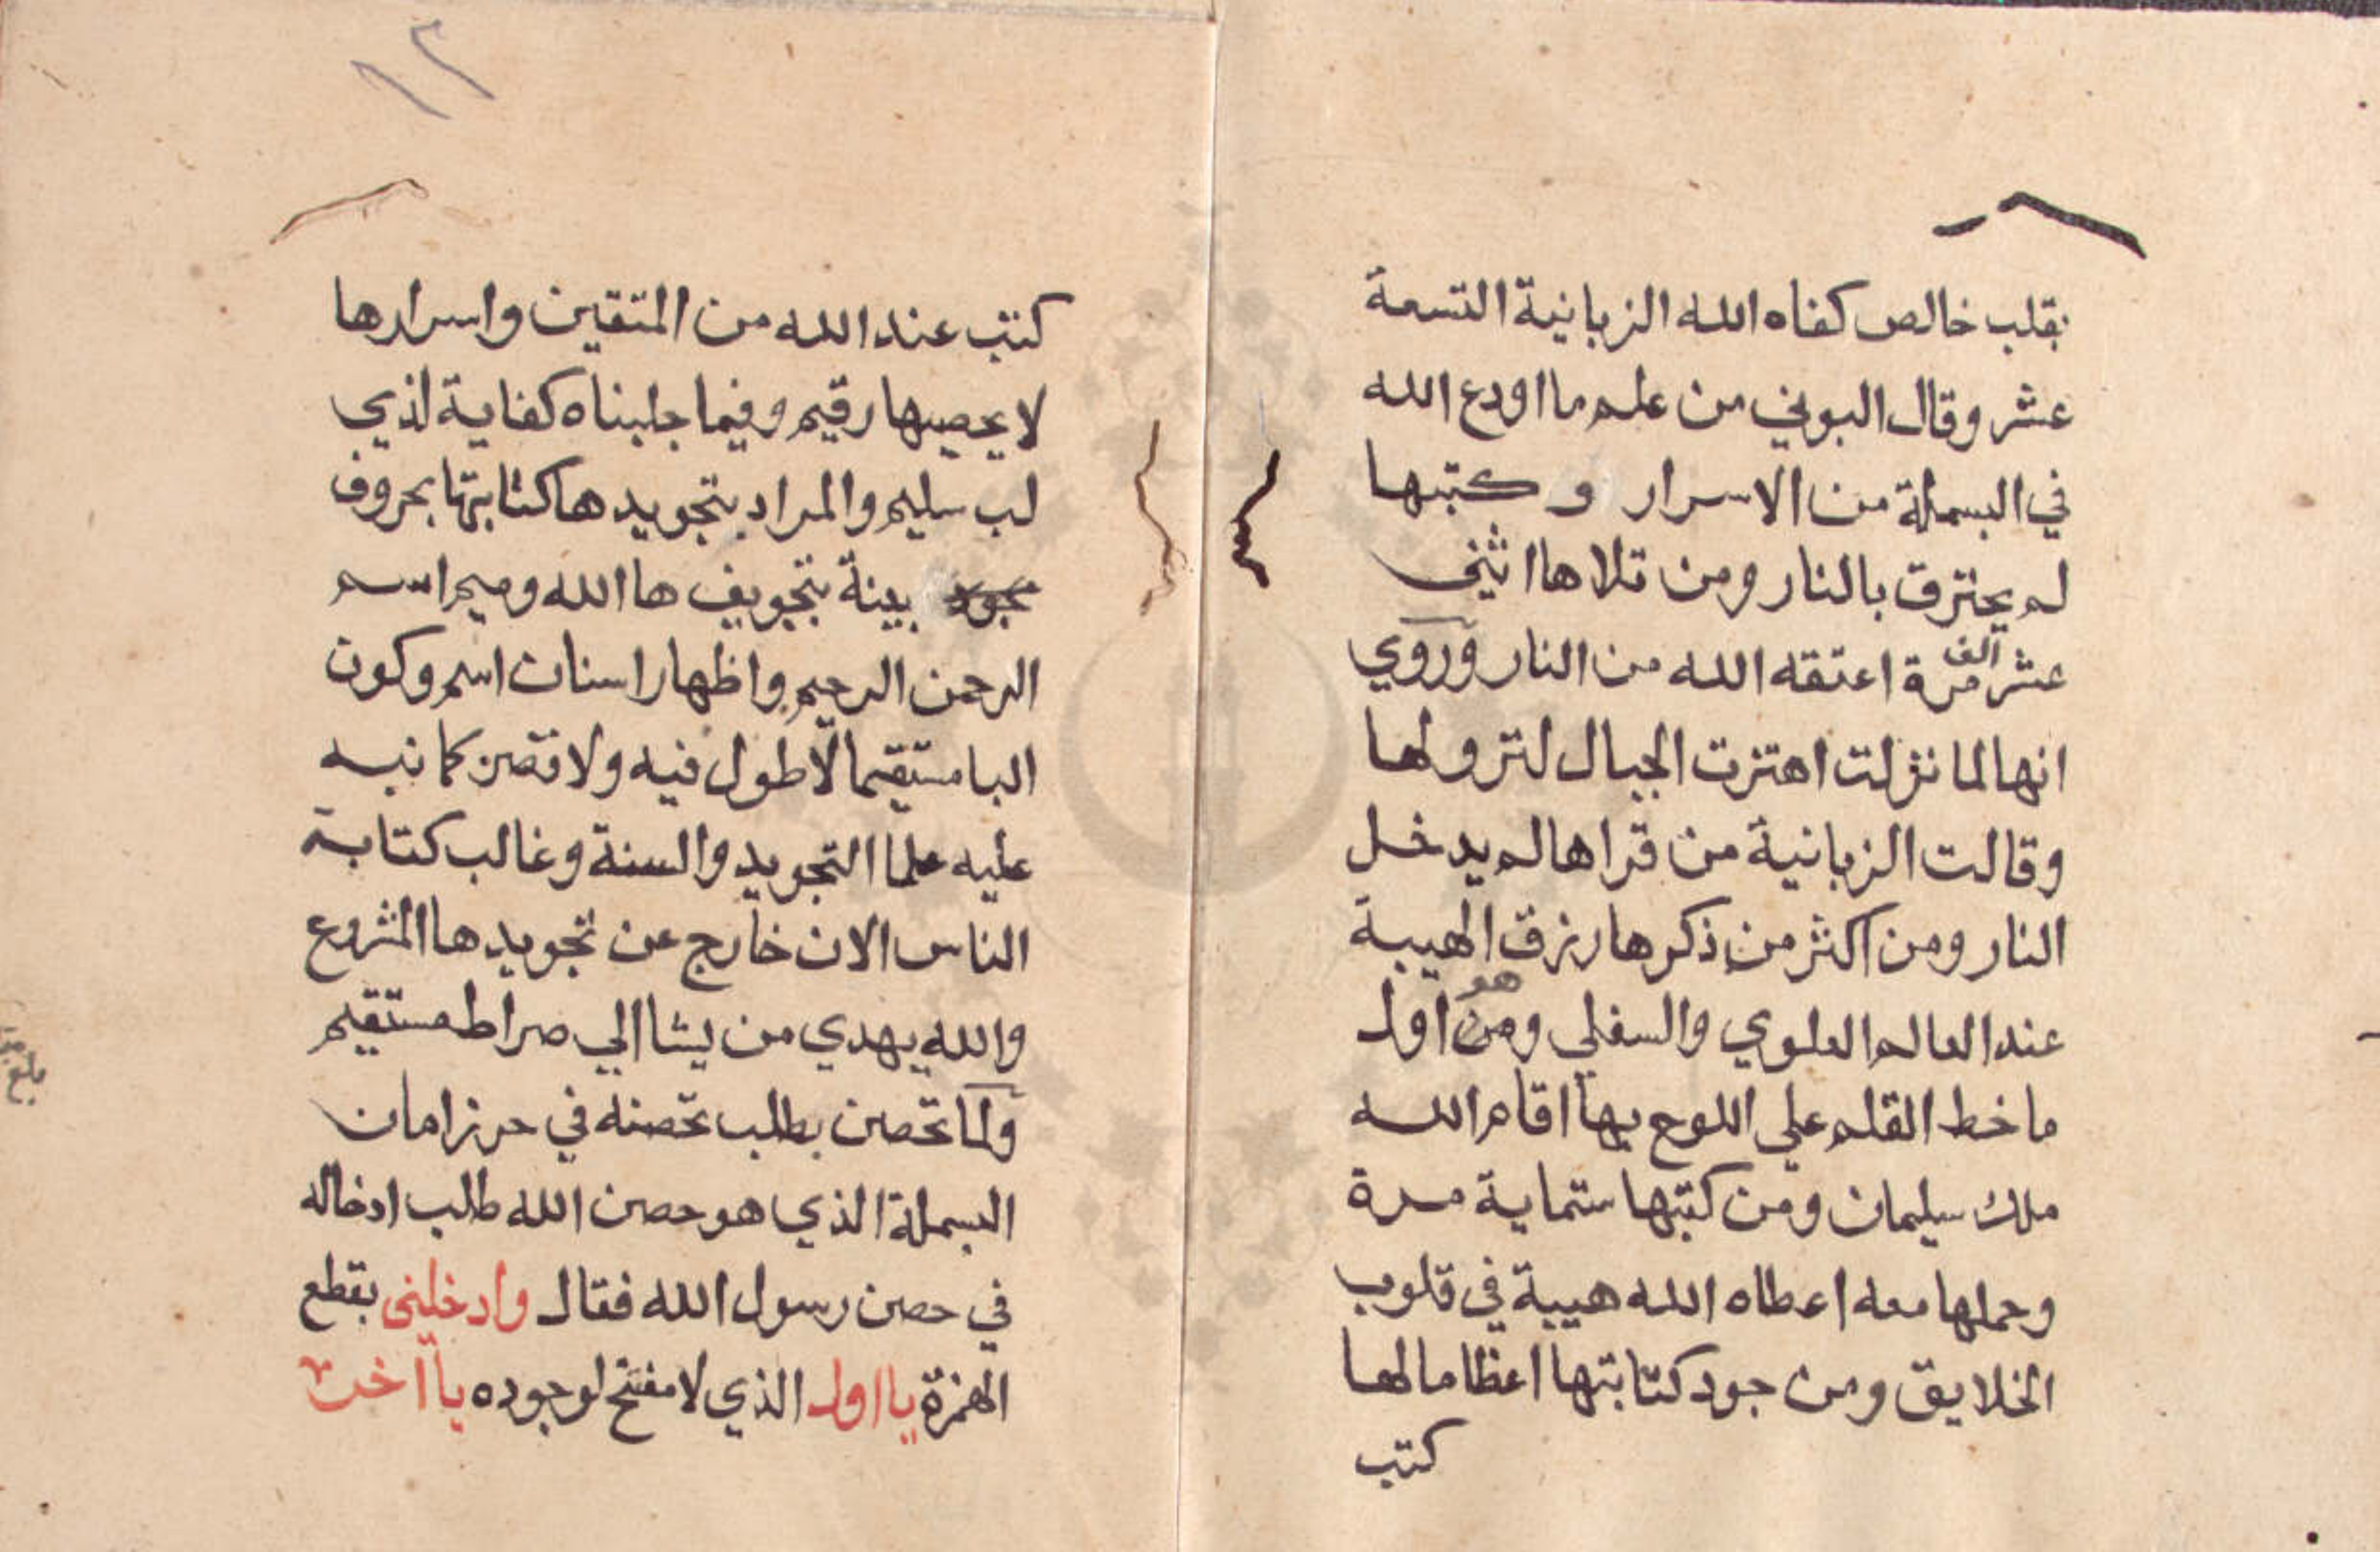 بقلب خالص كفاه الله الزبانية التسعة
عشر وقال البوني من علم ما اودع الله
في البسملة من الاسرار وكتبها
لم يحترق بالنار ومن تلاها اثني
عشر الف مرة اعتقه الله من النار وروي
انها لما نزلت اهتزت الجبال لنزولها
وقالت الزبانية من قراها لم يدخل
النار ومن اكثر من ذكرها رزق الهيبة
عند العالم العلوي والسفلي ومن هو اول
ما خط القلم علي اللوح بها اقام الله
ملك سليمان ومن كتبها ستماية مرة
وحملها معه اعطاه الله هيبة في قلوب
الخلايق ومن جود كتابتها اعظاما لها
كتب
١٢
كتب عند الله من المتقين واسرارها
لا يحصيها رقيم وفيما جلبناه كفاية لذي
لب سليم والمراد بتجويدها كتابتها بحروف
بينة بتجويف ها الله وميم اسم
الرحمن الرحيم واظهار اسنان اسم وكون
البا مستقيما لا طول فيه ولا قصر كما نبه
عليه علما التجويد والسنة وغالب كتابة
الناس الان خارج عن تجويدها المشروع
والله يهدي من يشا الي صراط مستقيم
ولما تحصن بطلب تحصنه في حرز امان
البسملة الذي هو حصن الله طلب ادخاله
في حصن رسول الله فقال وادخلني بقطع
الهمزة يا اول الذي لا مفتح لوجوده يا اخر